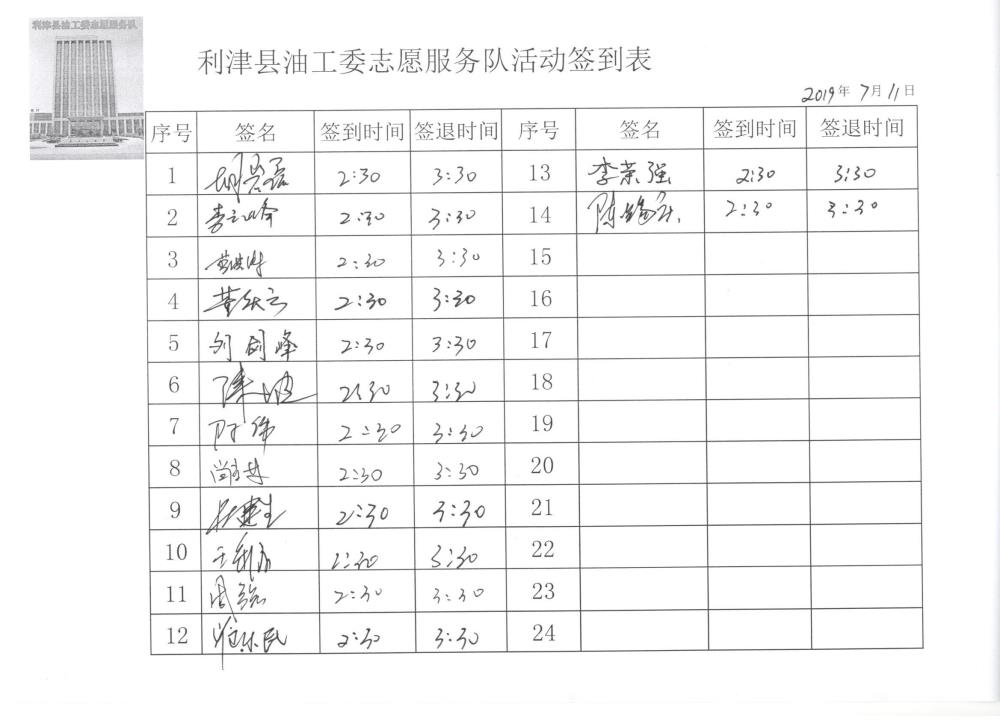 利津县油工委志愿服务队
利津县油工委志愿服务队活动签到表
2019年 7月 11日
序号 签名 签到时间 签退时间 序号 签名 签到时间 签退时间
1 2:30 3:30 13 李荣强 2:30 3:30
2 2:30 3:30 14 2:30 3:30
3 2:30 3:30 15
4 董庆云 2:30 3:30 16
5 刘国峰 2:30 3:30 17
6 陈波 2:30 3:30 18
7 2:30 3:30 19
8 2:30 3:30 20
9 2:30 3:30 21
10 2:30 3:30 22
11 周强 2:30 3:30 23
12 2:30 3:30 24